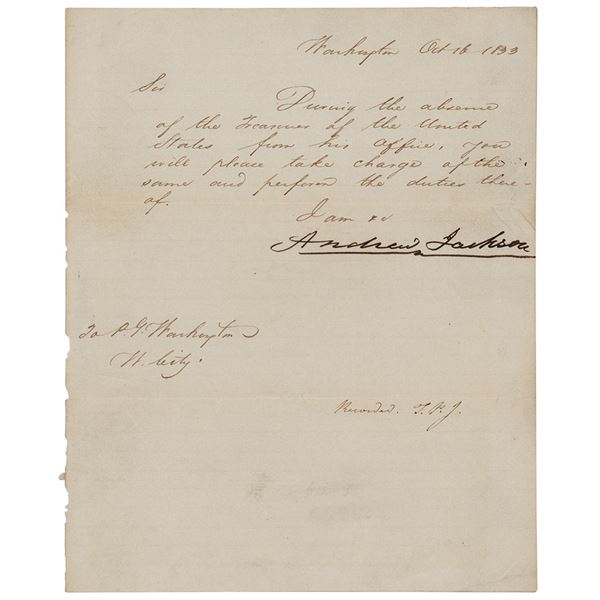 Washington Oct 16 1833
Sir
During the absence
of the Treasurer of the United
States from his office, you
will please take charge of the
same and perform the duties there-
of.
I am &c
Andrew Jackson
To P. G. Washington
W. City.
Recorded. T. P. J.